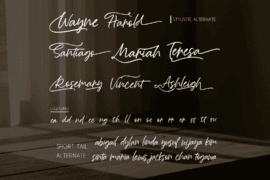 Wayne Harold
STYLISTIC ALTERNATE
Santiago Mariah Teresa
Rosemary Vincent Ashleigh
ea dd nd ee ng th ll on se or rr er ss st tt
SHORT TAIL
ALTERNATE
abigail dylan linda yusuf wijaya kim
sinta maria lewis jackson chan